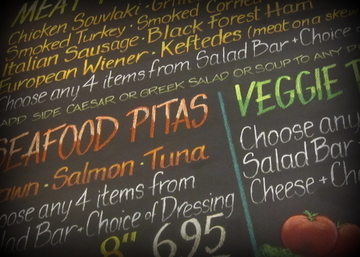 MEAT
Chicken Souvlaki · Grilled
Smoked Turkey · Smoked Corned
Italian Sausage · Black Forest Ham
European Wiener · Keftedes (meat on a skewer
Choose any 4 items from Salad Bar + Choice
ADD SIDE CAESAR OR GREEK SALAD OR SOUP TO ANY P
SEAFOOD PITAS
awn · Salmon · Tuna
oose any 4 items from
lad Bar + Choice of Dressing
8" 695
VEGGIE
Choose any
Salad Bar
Cheese + Ch